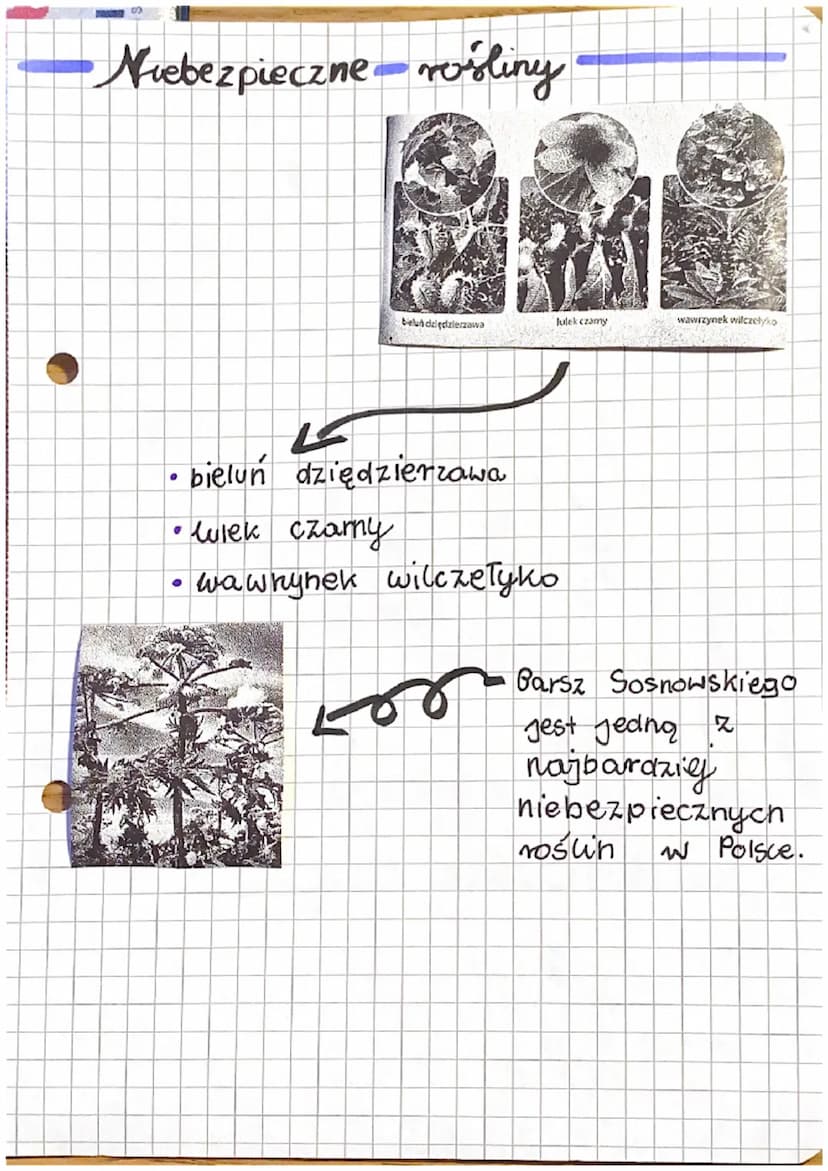 Niebezpieczne rośliny
bieluń dziędzierzawa
lulek czarny
wawrzynek wilczełyko
• bieluń dziędzierzawa
• lulek czarny
• wawrzynek wilczełyko
Barsz Sosnowskiego
jest jedną z
najbardziej
niebezpiecznych
roślin w Polsce.